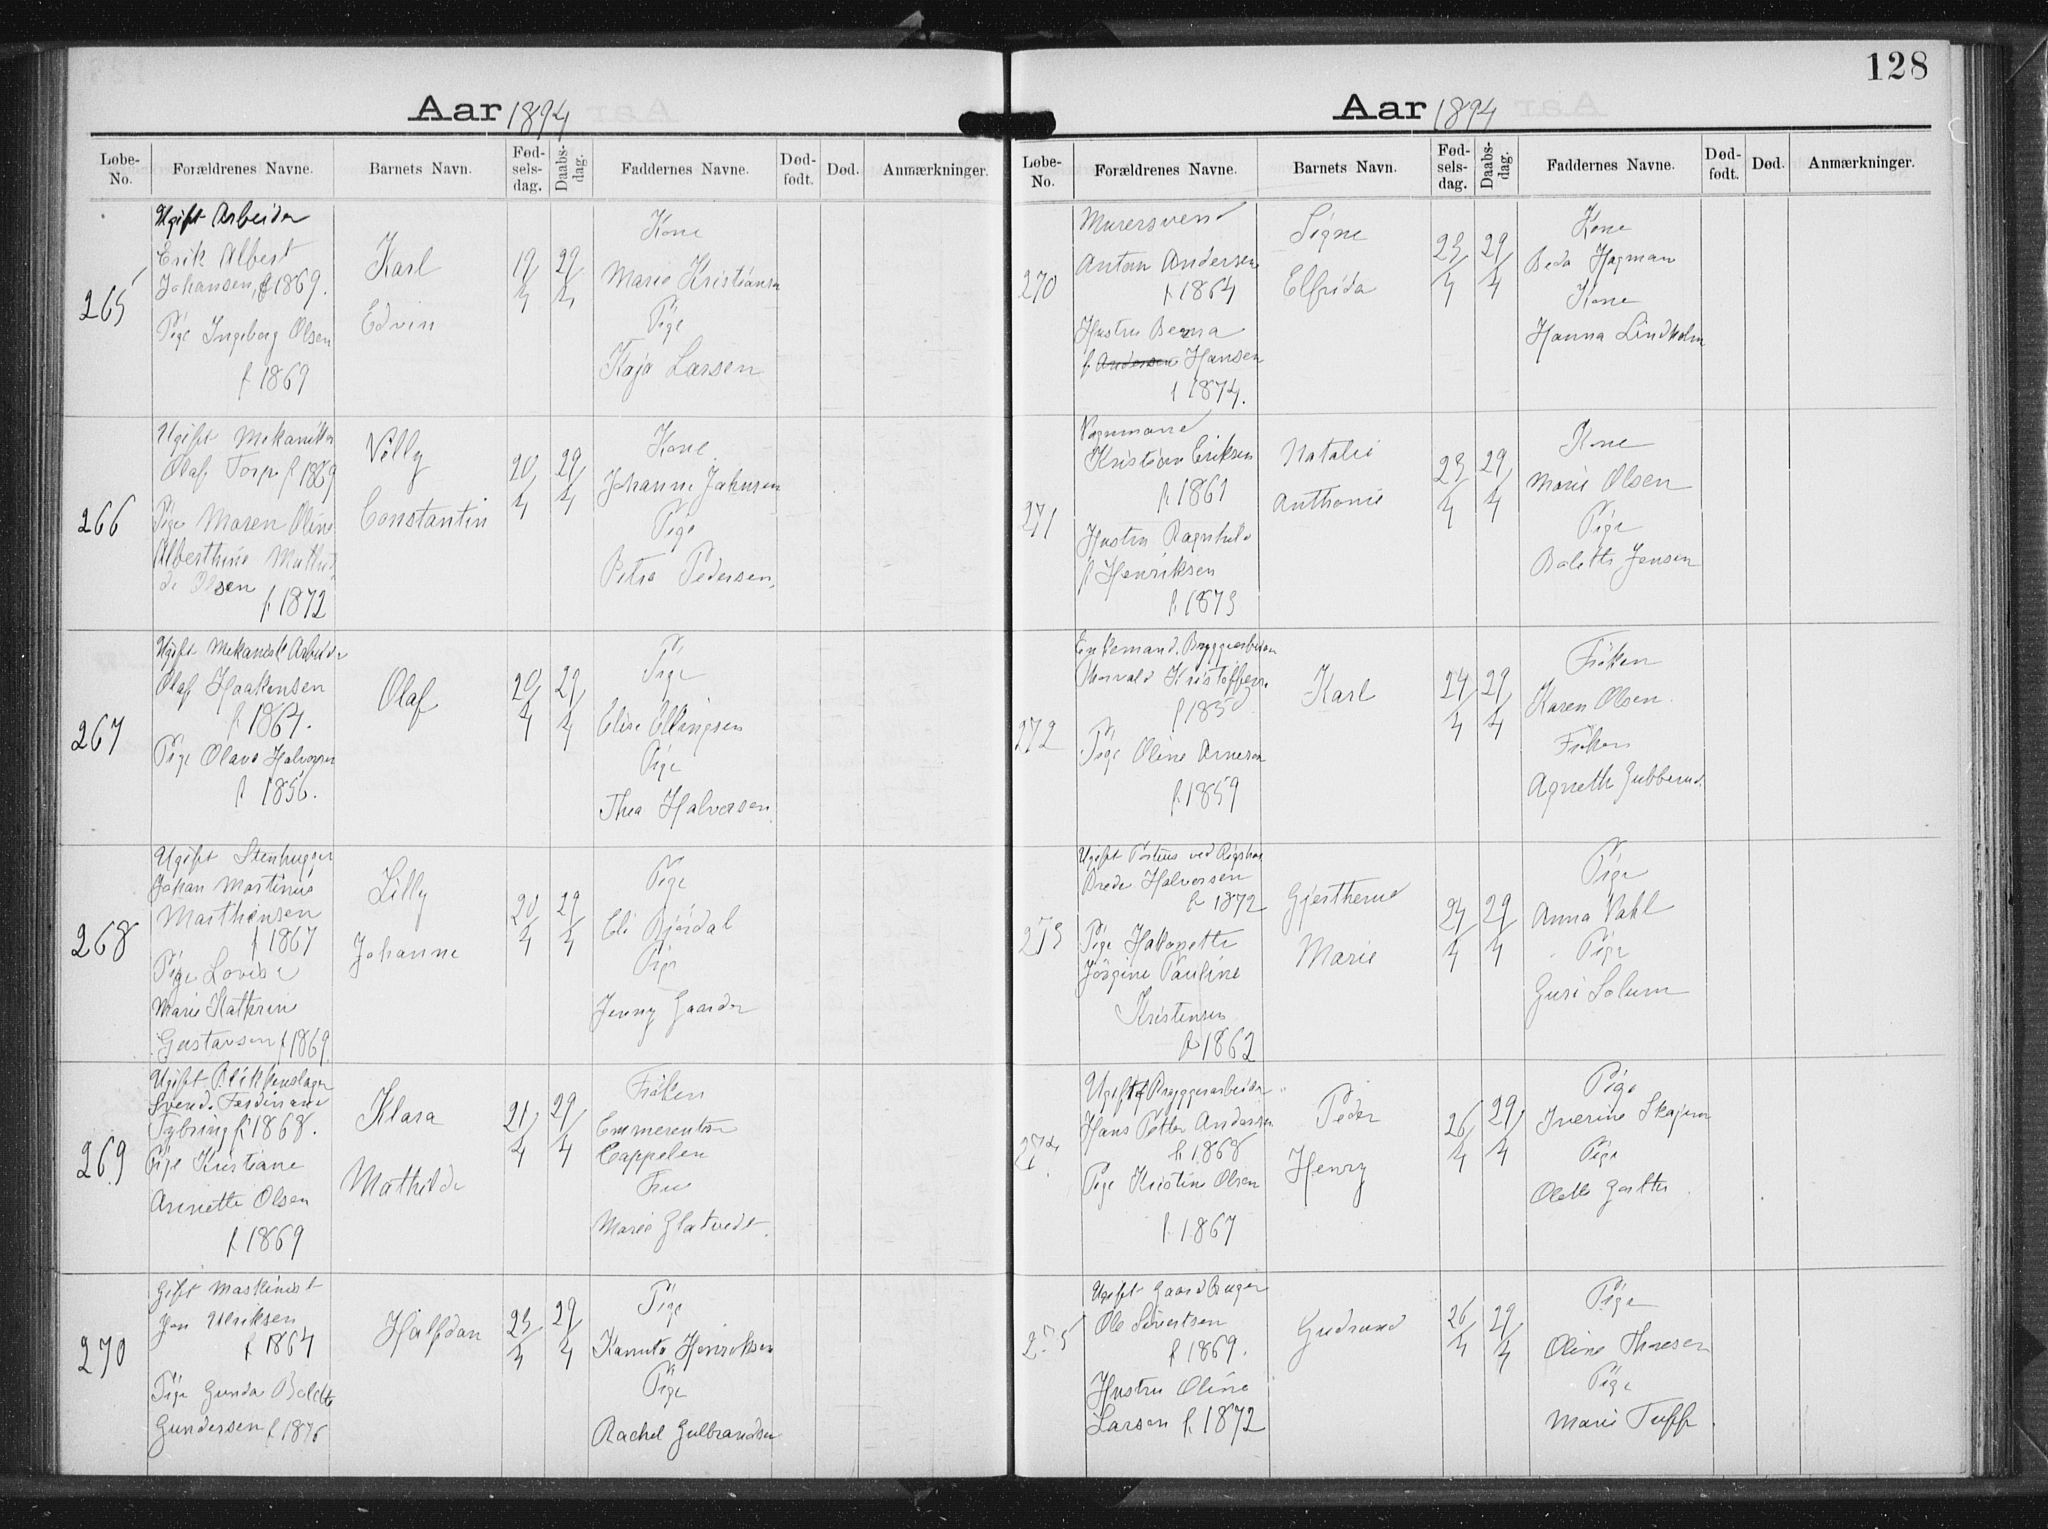 Aar 1894
Løbe-No.
Forældrenes Navne.
Barnets Navn.
Fød-sels-dag.
Daabs-dag.
Faddernes Navne.
Død-født.
Død.
Anmærkninger.
265
Ugift Arbeider
Erik Albert
Johansen, f 1869.
Pige Ingeborg Olsen
f 1869
Karl
Edvin
19/4
29/4
Kone
Marie Kristiansen
Pige
Kaja Larsen
266
Ugift Mekaniker
Olaf Torp f 1869
Pige Maren Oline
Alberthine Mathil-
de Olsen
f 1872
Villy
Constantin
20/4
29/4
Kone
Johanne Johnsen
Pige
Petra Pedersen.
267
Ugift Mekanisk Arbeider
Olaf Haakensen
f 1864.
Pige Olava Halvorsen
f 1856.
Olaf
20/4
29/4
Pige
Elise Ellingsen
Pige
Thea Halvorsen
268
Ugift Stenhugger
Johan Martinius
Marthinsen
f 1867
Pige Lovise
Marie Kathrine
Gustavsen f 1869.
Lilly
Johanne
20/4
29/4
Pige
Eli Bjørdal
Pige
Jenny Gaarder
269
Ugift Blikkenslager
Svend. Ferdinand
Tybring f 1868.
Pige Kristiane
Annette Olsen
f 1869
Klara
Mathilde
21/4
29/4
Frøken
Emmerentse
Cappelen
Frue
Marie Glatvedt.
270
Gift Maskinist
Jon Ulriksen
f 1864
Pige Gunda Bolette
Gundersen f 1876
Halfdan
23/4
29/4
Pige
Kanuta Henriksen
Pige
Rachel Gulbrandsen
128
Aar 1894
Løbe-No.
Forældrenes Navne.
Barnets Navn.
Fød-sels-dag.
Daabs-dag.
Faddernes Navne.
Død-født.
Død.
Anmærkninger.
270
Murersvend
Anton Andersen
f 1864
Hustru Berna
f. Andersen Hansen
f 1874.
Signe
Elfrida
23/4
29/4
Kone
Beda Hagman
Kone
Hanna Lindholm
271
Vognmand
Kristian Eriksen
f 1861
Hustru Ragnhild
f Henriksen
f 1873
Natalie
Anthonie
23/4
29/4
Kone
Marie Olsen
Pige
Bolette Jensen
272
Enkemand. Bryggearbeider
Thorvald Kristoffers.
Pige Oline Arnesen
f 1859
Karl
24/4
29/4
Frøken
Karen Olsen.
Frøken
Agnethe Gubberud.
273
Brede Halvorsen
f 1872
Pige Hakonette
Jørgine Pauline
Kristensen
f 1862
Gjertherud
Marie
24/4
29/4
Pige
Anna Vahl
Pige
Guri Solum
274
Ugift Bryggeriarbeider
Hans Petter Andersen
f 1868
Pige Kristine Olsen
f 1867
Peder
Henry
26/4
29/4
Pige
Iverine Skajem
Pige
Olette
275
Ugift Gaardbruger
Ole Sivertsen
f 1869.
Hustru Oline
Larsen f 1872
Gudrund
26/4
29/4
Pige
Oline Thoresen
Pige
Marie Tuff.